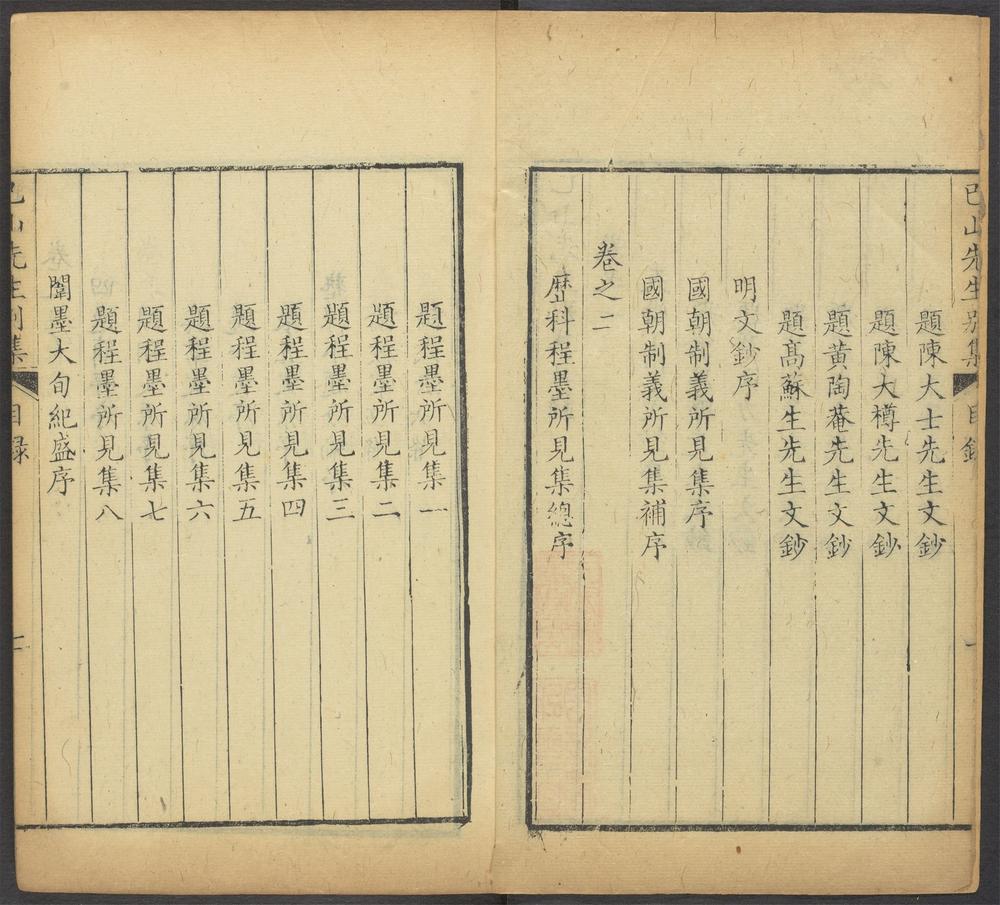 巳山先生別集 目錄 一
題陳大士先生文鈔
題陳大樽先生文鈔
題黃陶菴先生文鈔
題高蘇生先生文鈔
明文鈔序
國朝制義所見集序
國朝制義所見集補序
卷之二
歴科程墨所見集總序
題程墨所見集一
題程墨所見集二
題程墨所見集三
題程墨所見集四
題程墨所見集五
題程墨所見集六
題程墨所見集七
題程墨所見集八
闈墨大旬紀盛序
巳山先生別集 目録